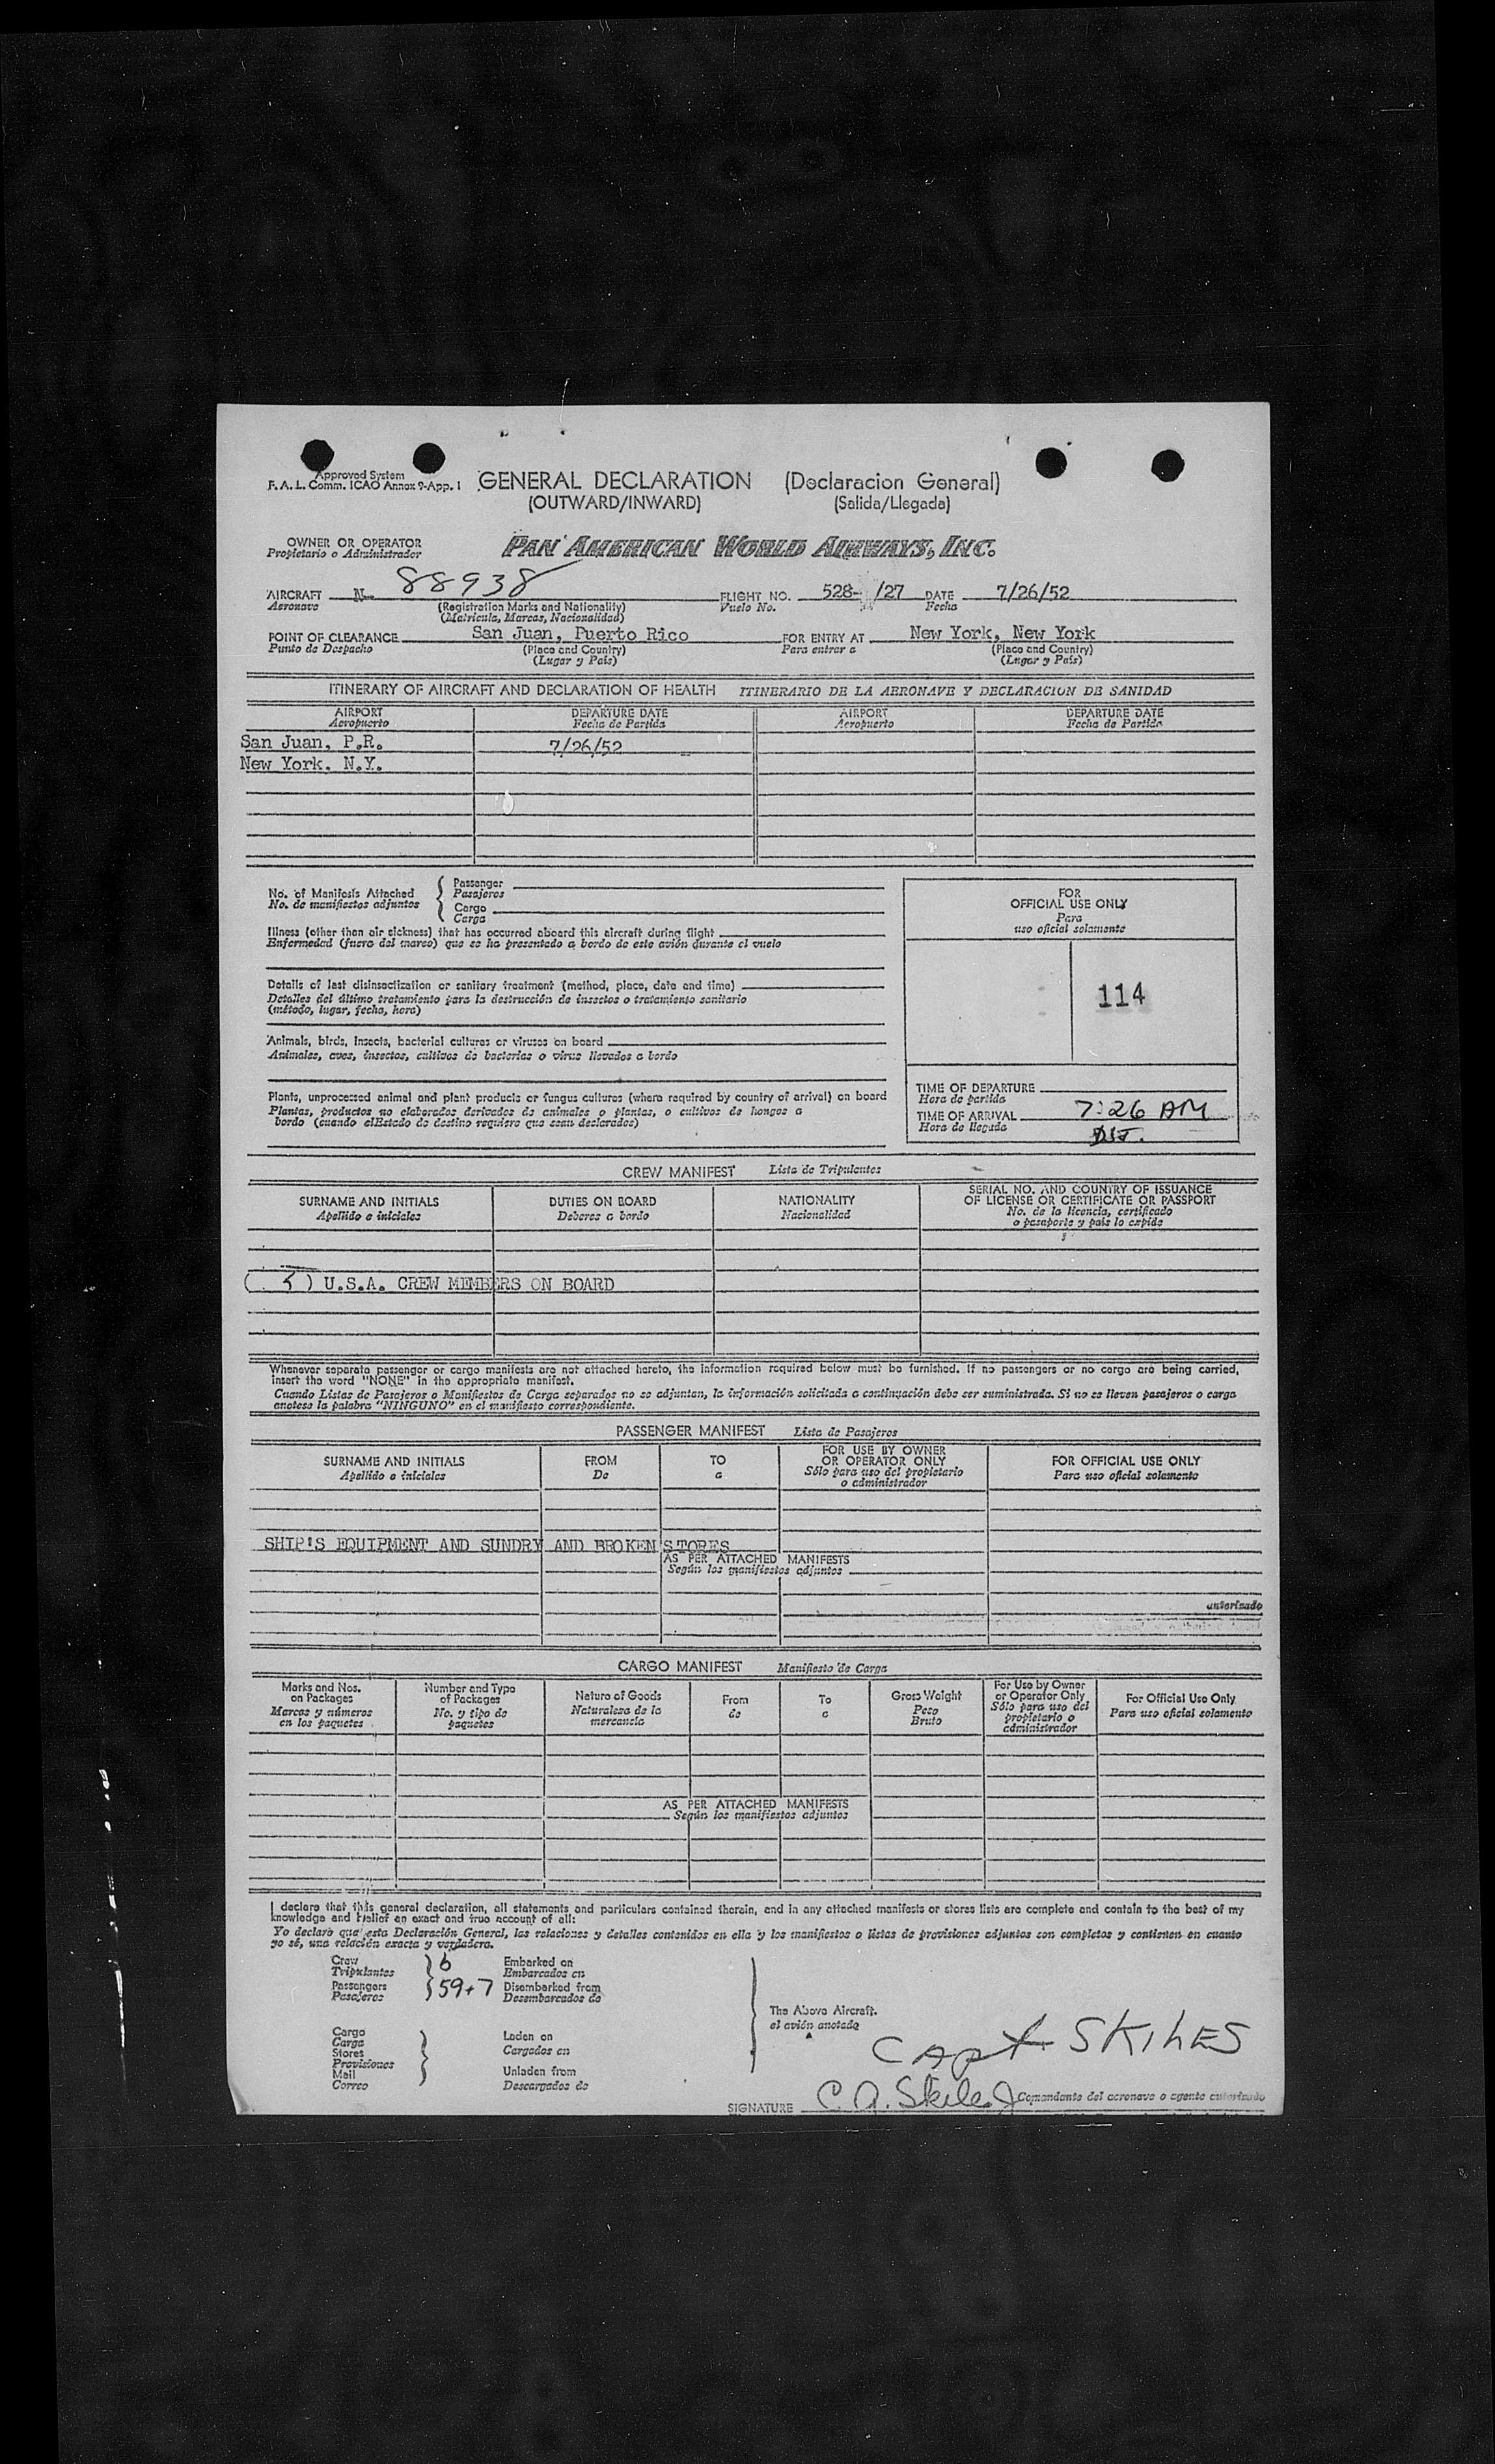 Approved System
F. A. L. Comm. ICAO Annex 9-App. 1
GENERAL DECLARATION (Declaracion General)
(OUTWARD/INWARD) (Salida/Llegada)
OWNER OR OPERATOR
Propietario o Administrador
PAN AMERICAN WORLD AIRWAYS, INC.
AIRCRAFT N 88938 FLIGHT NO. 528- /27 DATE 7/26/52
Aeronave (Registration Marks and Nationality) Vuelo No. Fecha
(Matricula, Marcas, Nacionalidad)
POINT OF CLEARANCE San Juan, Puerto Rico FOR ENTRY AT New York, New York
Punto de Despacho (Place and Country) Para entrar a (Place and Country)
(Lugar y País) (Lugar y País)
ITINERARY OF AIRCRAFT AND DECLARATION OF HEALTH ITINERARIO DE LA AERONAVE Y DECLARACION DE SANIDAD
AIRPORT DEPARTURE DATE AIRPORT DEPARTURE DATE
Aeropuerto Fecha de Partida Aeropuerto Fecha de Partida
San Juan, P.R. 7/26/52
New York, N.Y.
No. of Manifests Attached
No. de manifiestos adjuntos
Passenger
Pasajeros
Cargo
Carga
Illness (other than air sickness) that has occurred aboard this aircraft during flight
Enfermedad (fuera del mareo) que se ha presentado a bordo de este avión durante el vuelo
Details of last disinsectization or sanitary treatment (method, place, date and time)
Detalles del último tratamiento para la destrucción de insectos o tratamiento sanitario
(método, lugar, fecha, hora)
Animals, birds, insects, bacterial cultures or viruses on board
Animales, aves, insectos, cultivos de bacterias o virus llevados a bordo
Plants, unprocessed animal and plant products or fungus cultures (where required by country of arrival) on board
Plantas, productos no elaborados derivados de animales o plantas, o cultivos de hongos a
bordo (cuando elEstado de destino requiere que sean declarados)
FOR
OFFICIAL USE ONLY
Para
uso oficial solamente
114
TIME OF DEPARTURE
Hora de partida
TIME OF ARRIVAL 7:26 AM
Hora de llegada
CREW MANIFEST Lista de Tripulantes
SURNAME AND INITIALS DUTIES ON BOARD NATIONALITY SERIAL NO. AND COUNTRY OF ISSUANCE
OF LICENSE OR CERTIFICATE OR PASSPORT
Apellido e iniciales Deberes a bordo Nacionalidad No. de la licencia, certificado
o pasaporte y país lo expide
( 5 ) U.S.A. CREW MEMBERS ON BOARD
Whenever separate passenger or cargo manifests are not attached hereto, the information required below must be furnished. If no passengers or no cargo are being carried,
insert the word "NONE" in the appropriate manifest.
Cuando Listas de Pasajeros o Manifiestos de Carga separados no se adjuntan, la información solicitada a continuación debe ser suministrada. Si no se lleven pasajeros o carga
anotese la palabra "NINGUNO" en el manifiesto correspondiente.
PASSENGER MANIFEST Lista de Pasajeros
SURNAME AND INITIALS FROM TO FOR USE BY OWNER
OR OPERATOR ONLY FOR OFFICIAL USE ONLY
Apellido e iniciales De a Sólo para uso del propietario
o administrador Para uso oficial solamente
SHIP'S EQUIPMENT AND SUNDRY AND BROKEN STORES
AS PER ATTACHED MANIFESTS
Según los manifiestos adjuntos
autorizado
CARGO MANIFEST Manifiesto de Carga
Marks and Nos.
on Packages
Marcas y números
en los paquetes
Number and Type
of Packages
No. y tipo de
paquetes
Nature of Goods
Naturaleza de la
mercancía
From
de
To
a
Gross Weight
Peso
Bruto
For Use by Owner
or Operator Only
Sólo para uso del
propietario o
administrador
For Official Use Only
Para uso oficial solamente
AS PER ATTACHED MANIFESTS
Según los manifiestos adjuntos
I declare that this general declaration, all statements and particulars contained therein, and in any attached manifests or stores lists are complete and contain to the best of my
knowledge and belief an exact and true account of all:
Yo declaro que esta Declaración General, las relaciones y detalles contenidos en ella y los manifiestos o listas de provisiones adjuntos son completos y contienen en cuanto
yo sé, una relación exacta y verdadera.
Crew 6 Embarked on
Tripulantes Embarcados en
Passengers 59+7 Disembarked from
Pasajeros Desembarcados de
The Above Aircraft.
el avión anotado
Cargo
Carga
Stores
Provisiones
Mail
Correo
Laden on
Cargados en
Unladen from
Descargados de
CAPT SKILES
SIGNATURE C. A. Skiles Comandante del aeronave o agente autorizado